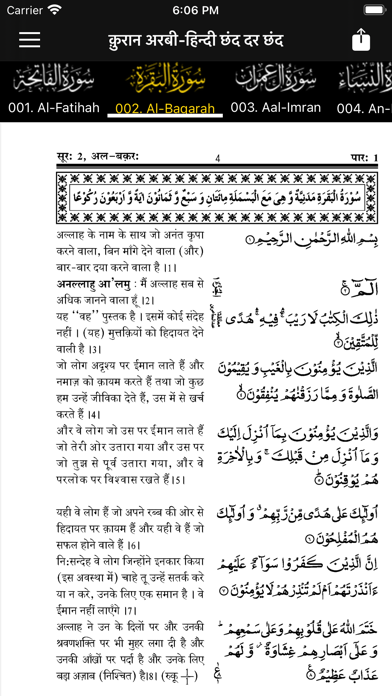 Carrier 6:06 PM
क़ुरान अरबी-हिन्दी छंद दर छंद
سورة الفاتحة سورة البقرة سورة آل عمران النساء
001. Al-Fatihah 002. Al-Baqarah 003. Aal-Imran 004. An-
सूर: 2, अल-बक़र: 4 पार: 1
سُوْرَةُ الْبَقَرَةِ مَدَنِيَّةٌ وَّ هِيَ مَعَ الْبَسْمَلَةِ مِائَتَانِ وَ سَبْعٌ وَّ ثَمَانُوْنَ اٰيَةً وَّ اَرْبَعُوْنَ رُكُوْعًا
अल्लाह के नाम के साथ जो अनंत कृपा
करने वाला, बिन मांगे देने वाला (और)
बार-बार दया करने वाला है ।1।
अनल्लाहु आ'लमु : मैं अल्लाह सब से
अधिक जानने वाला हूँ ।2।
यह ‘‘वह’’ पुस्तक है । इसमें कोई संदेह
नहीं । (यह) मुत्तक़ियों को हिदायत देने
वाली है ।3।
जो लोग अदृश्य पर ईमान लाते हैं और
नमाज़ को क़ायम करते हैं तथा जो कुछ
हम उन्हें जीविका देते हैं, उस में से खर्च
करते हैं ।4।
और वे लोग जो उस पर ईमान लाते हैं
जो तेरी ओर उतारा गया और उस पर
जो तुझ से पूर्व उतारा गया, और वे
परलोक पर विश्वास रखते हैं।5।
यही वे लोग हैं जो अपने रब्ब की ओर से
हिदायत पर क़ायम हैं और यही वे हैं जो
सफल होने वाले हैं ।6।
नि:सन्देह वे लोग जिन्होंने इनकार किया
(इस अवस्था में) चाहे तू उन्हें सतर्क करे
या न करे, उनके लिए एक समान है । वे
ईमान नहीं लाएँगे ।7।
अल्लाह ने उन के दिलों पर और उनकी
श्रवणशक्ति पर भी मुहर लगा दी है और
उनकी आँखों पर पर्दा है और उनके लिए
बड़ा अज़ाब (निश्चित) है।8। (रुकू 1/1)
بِسْمِ اللّٰهِ الرَّحْمٰنِ الرَّحِيْمِ ۝
الٓمّٓ ۝
ذٰلِكَ الْكِتٰبُ لَا رَيْبَ ۛ فِيْهِ ۛ هُدًى
لِّلْمُتَّقِيْنَ ۝
الَّذِيْنَ يُؤْمِنُوْنَ بِالْغَيْبِ وَ يُقِيْمُوْنَ
الصَّلٰوةَ وَ مِمَّا رَزَقْنٰهُمْ يُنْفِقُوْنَ ۝
وَالَّذِيْنَ يُؤْمِنُوْنَ بِمَاۤ اُنْزِلَ اِلَيْكَ
وَ مَاۤ اُنْزِلَ مِنْ قَبْلِكَ ۚ وَ بِالْاٰخِرَةِ
هُمْ يُوْقِنُوْنَ ۝
اُولٰٓئِكَ عَلٰى هُدًى مِّنْ رَّبِّهِمْ ۙ وَ اُولٰٓئِكَ
هُمُ الْمُفْلِحُوْنَ ۝
اِنَّ الَّذِيْنَ كَفَرُوْا سَوَآءٌ عَلَيْهِمْ
ءَاَنْذَرْتَهُمْ اَمْ لَمْ تُنْذِرْهُمْ لَا يُؤْمِنُوْنَ ۝
خَتَمَ اللّٰهُ عَلٰى قُلُوْبِهِمْ وَعَلٰى سَمْعِهِمْ ؕ
وَ عَلٰۤى اَبْصَارِهِمْ غِشَاوَةٌ ۫ وَّ لَهُمْ
عَذَابٌ عَظِيْمٌ ۝